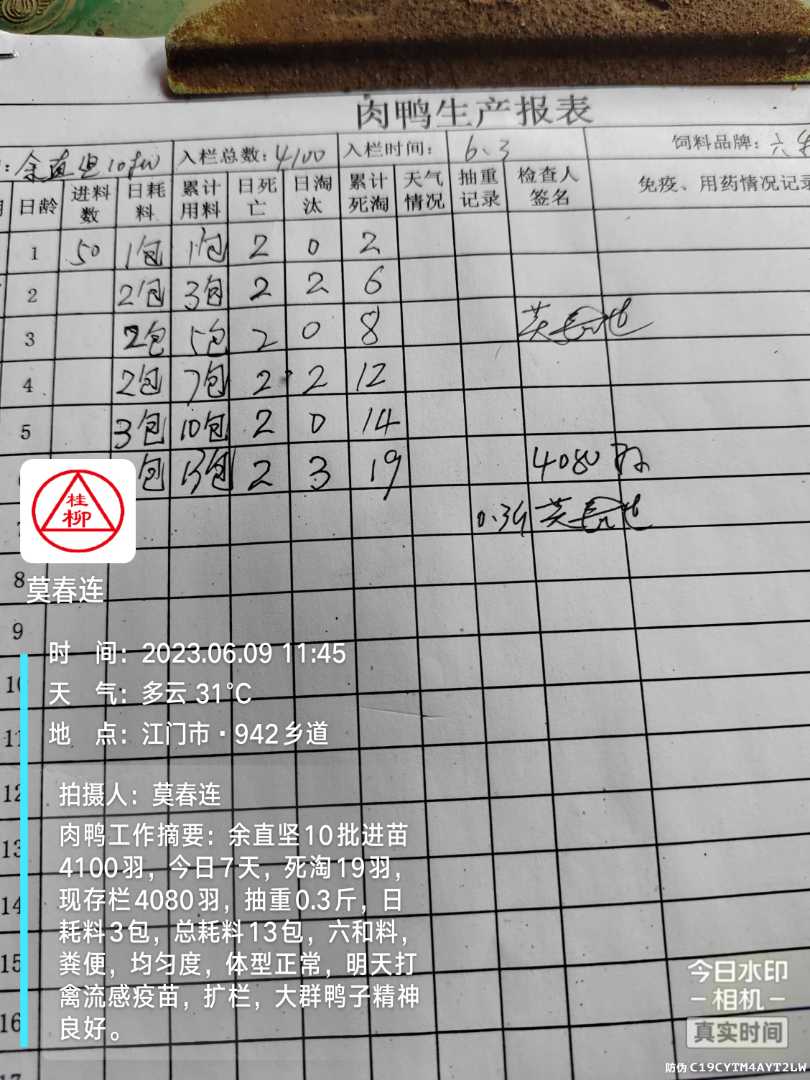 肉鸭生产报表
余直坚10批 入栏总数: 4100 入栏时间: 6.3 饲料品牌: 六
日龄 进料数 日耗料 累计用料 日死亡 日淘汰 累计死淘 天气情况 抽重记录 检查人签名 免疫、用药情况记录
1 50 1包 1包 2 0 2
2 2包 3包 2 2 6
3 2包 5包 2 0 8
4 2包 7包 2 2 12
5 3包 10包 2 0 14
包 13包 2 3 19 4080
8
9
10
11
12
13
14
15
16
桂柳
莫春连
时 间: 2023.06.09 11:45
天 气: 多云 31℃
地 点: 江门市·942乡道
拍摄人: 莫春连
肉鸭工作摘要: 余直坚10批进苗
4100羽, 今日7天, 死淘19羽,
现存栏4080羽, 抽重0.3斤, 日
耗料3包, 总耗料13包, 六和料,
粪便, 均匀度, 体型正常, 明天打
禽流感疫苗, 扩栏, 大群鸭子精神
良好。
今日水印
-相机-
真实时间
防伪 C19CYTM4AYT2LW